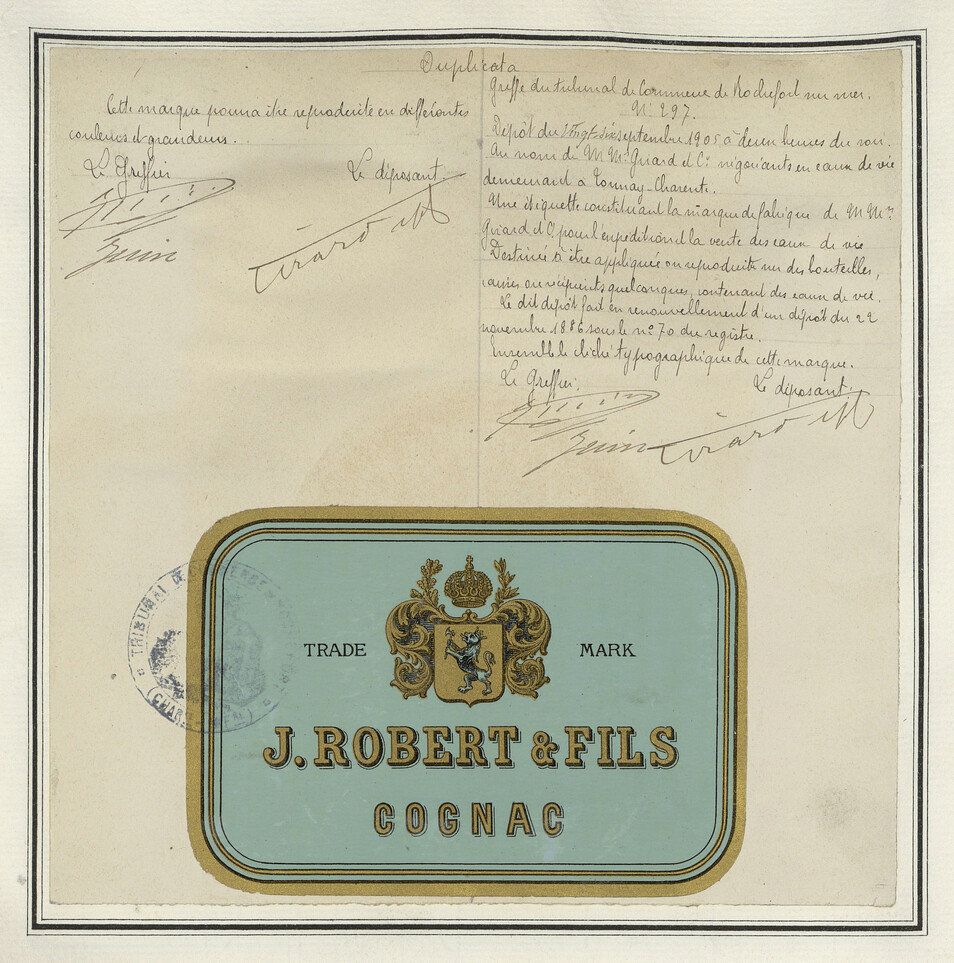 Duplicata
Cette marque pourra être reproduite en différentes
couleurs et grandeurs.
Le Greffier
Le déposant
Girard et C
Greffe du tribunal de Commerce de Rochefort sur mer.
N° 297.
Dépôt du Vingt-six septembre 1905 à deux heures du soir.
Au nom de M Mrs Girard et Cie négociants en eaux de vie
demeurant à Tonnay-Charente.
Une étiquette constituant la marque de fabrique de M Mrs
Girard et Cie pour l'expédition et la vente des eaux de vie
Destinée à être appliquée ou reproduite sur des bouteilles,
caisses ou récipients quelconques, contenant des eaux de vie.
Le dit dépôt fait en renouvellement d'un dépôt du 22
novembre 1886 sous le n° 70 du registre.
Ensemble le cliché typographique de cette marque.
Le Greffier.
Le déposant
Girard et C
TRIBUNAL DE
TRADE MARK
J. ROBERT & FILS
COGNAC